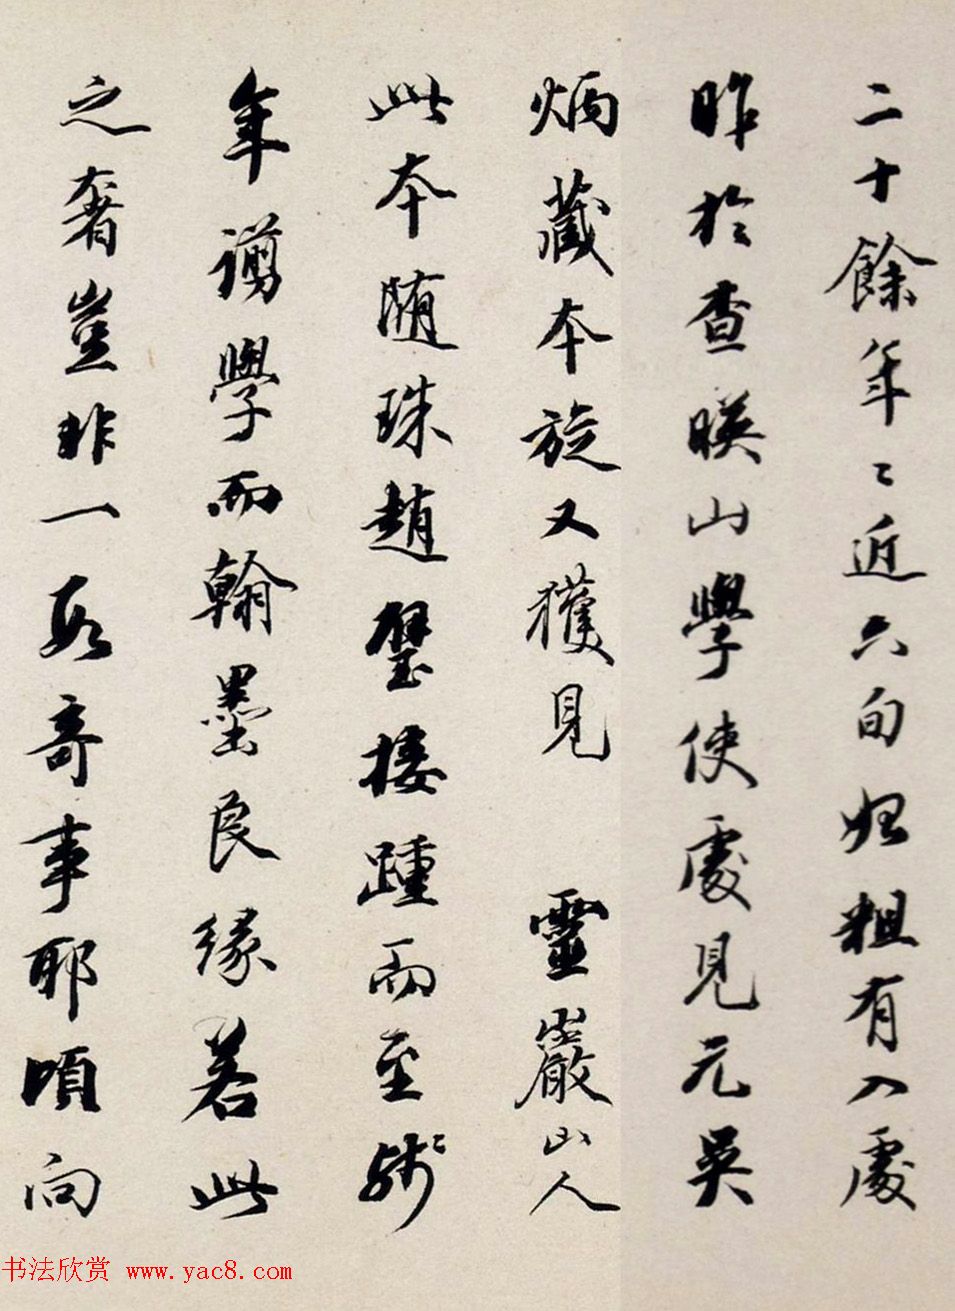 二十餘年〻近六旬始粗有入處
昨於查暎山學使處見元吳
炳藏本旋又獲見 靈巖山人
此本随珠趙璧接踵而至殘
年謭學而翰墨良緣若此
之奢豈非一段奇事耶頃向
书法欣赏 www.yac8.com